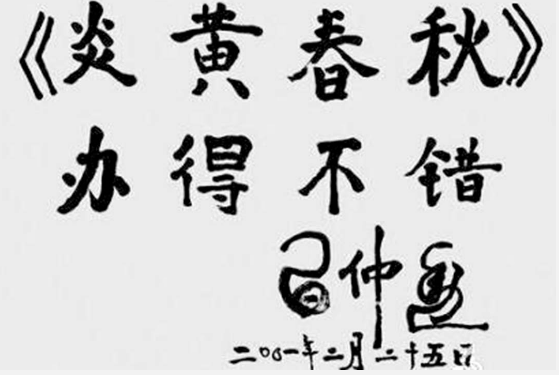 《炎黄春秋》
办得不错
习仲勋
二〇〇一年二月二十五日